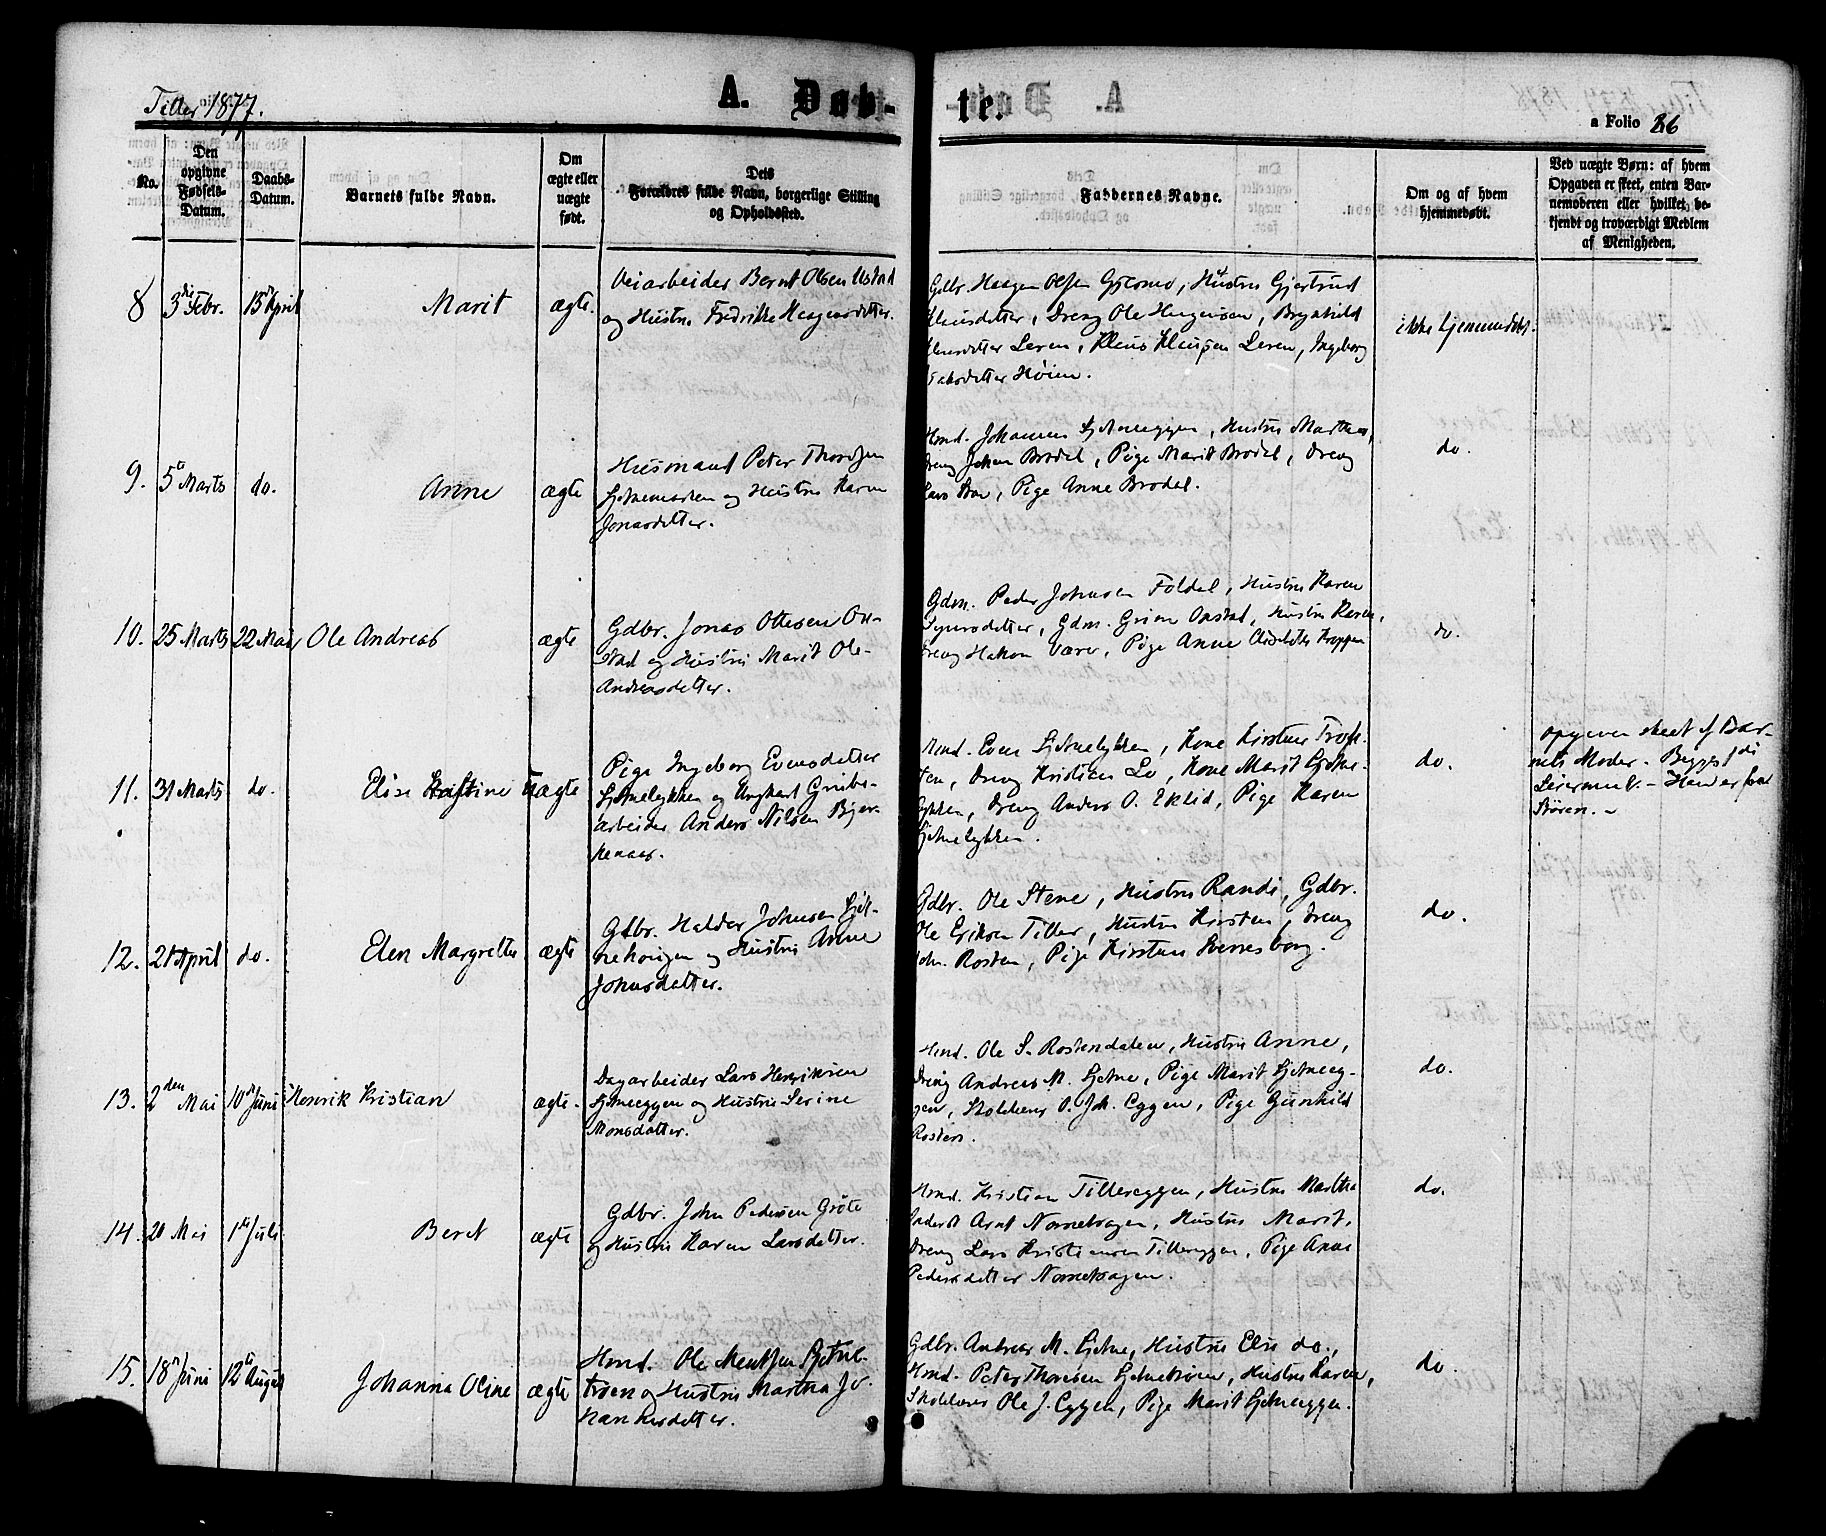 Tiller 1877.
A. Døbte.
a Folio 26
No.
Den opgivne Fødsels-Datum.
Daabs-Datum.
Barnets fulde Navn.
Om ægte eller uægte født.
Dets Forældres fulde Navn, borgerlige Stilling og Opholdssted.
Faddernes Navne.
Om og af hvem hjemmedøbt.
Ved uægte Børn: af hvem Opgaven er skeet, enten Barnemoderen eller hvilket, bekjendt og troværdigt Medlem af Menigheden.
8 3die Febr. 15de April Marit ægte.
Veiarbeider Bernt Olsen Ustad
og Hustru Fredrikke Haagensdatter.
Gdbr. Haagen Olsen, Hustru Gjertrud
Klausdatter, Dreng Ole Haagensen, Brynhild
Klausdatter Leren, Klaus Klausen Leren, Ingeborg
Høien.
ikke hjemmedøbt.
9. 5te Marts do. Anne ægte
Husmand Peter Thoresen
Sjetnemarken og Hustru Karen
Jonasdatter.
Hmd. Johannes Sjetneeggen, Hustru Martha,
Dreng Johan Brødel, Pige Marit Brødel, Dreng
Lars, Pige Anne Brødel.
do.
10. 25 Marts 22 Mai Ole Andreas ægte
Gdbr. Jonas Ottesen On-
stad og Hustru Marit Ole-
Andreasdatter.
Gdm. Peder Johnsen Foldal, Hustru Karen
Gdm. Grim Onstad, Hustru Karen,
Dreng Hakon Være, Pige Anne Kroppen
do.
11. 31 Marts do. Elise Kristine Uægte
Pige Ingeborg Evensdatter
Sjetnelykken og Ungkarl Grube-
arbeider Anders Nilsen Bjer-
kenaas.
Hmd. Even Sjetnelykken, Kone Kirstine
Dreng Kristian Lo, Kone Marit Sjetne-
lykken, Dreng Anders O. Eklid, Pige Karen
Sjetnelykken.
do.
opgiven skeet af Bar-
nets Moder. Begges 1ste
Leiermaal. - Han er fra
Støren. -
12. 21 April do. Elen Margrethe ægte
Gdbr. Haldor Johnsen Sjet-
nehaugen og Hustru Anne
Johnsdatter.
Gdbr. Ole Stene, Hustru Randi, Gdbr.
Ole Eriksen Tiller, Hustru Kirsten, Dreng
Joh. Rosten, Pige Kirstine Svenesborg.
do.
13. 2den Mai 10de Juni Henrik Kristian ægte.
Dagarbeider Lars Henriksen
Sjetneeggen og Hustru Serine
Monsdatter.
Hmd. Ole S. Rostendalen, Hustru Anne,
Dreng Andreas M. Sjetne, Pige Marit Sjetneeg-
gen, Skolelærer O. Joh. Eggen, Pige Gunhild
Rosten.
do.
14. 20 Mai 1ste Juli Beret ægte
Gdbr. John Pedersen Grøte
og Hustru Karen Larsdatter.
Hmd. Kristian Tillereggen, Hustru Martha
Inderst Arnt Nornehagen, Hustru Marit,
Dreng Lars Kristiansen Tillereggen, Pige Anne
Pedersdatter Nornehagen.
do.
15. 18de Juni 12te August Johanna Oline ægte
Hmd. Ole Mentsen Sjetne-
trøen og Hustru Martha Jo-
hannesdatter.
Gdbr. Andreas M. Sjetne, Hustru Elen do.,
Hmd. Peter Thoresen Sjetnetrøen, Hustru Karen,
Skolelærer Ole J. Eggen, Pige Marit Sjetneeggen.
do.